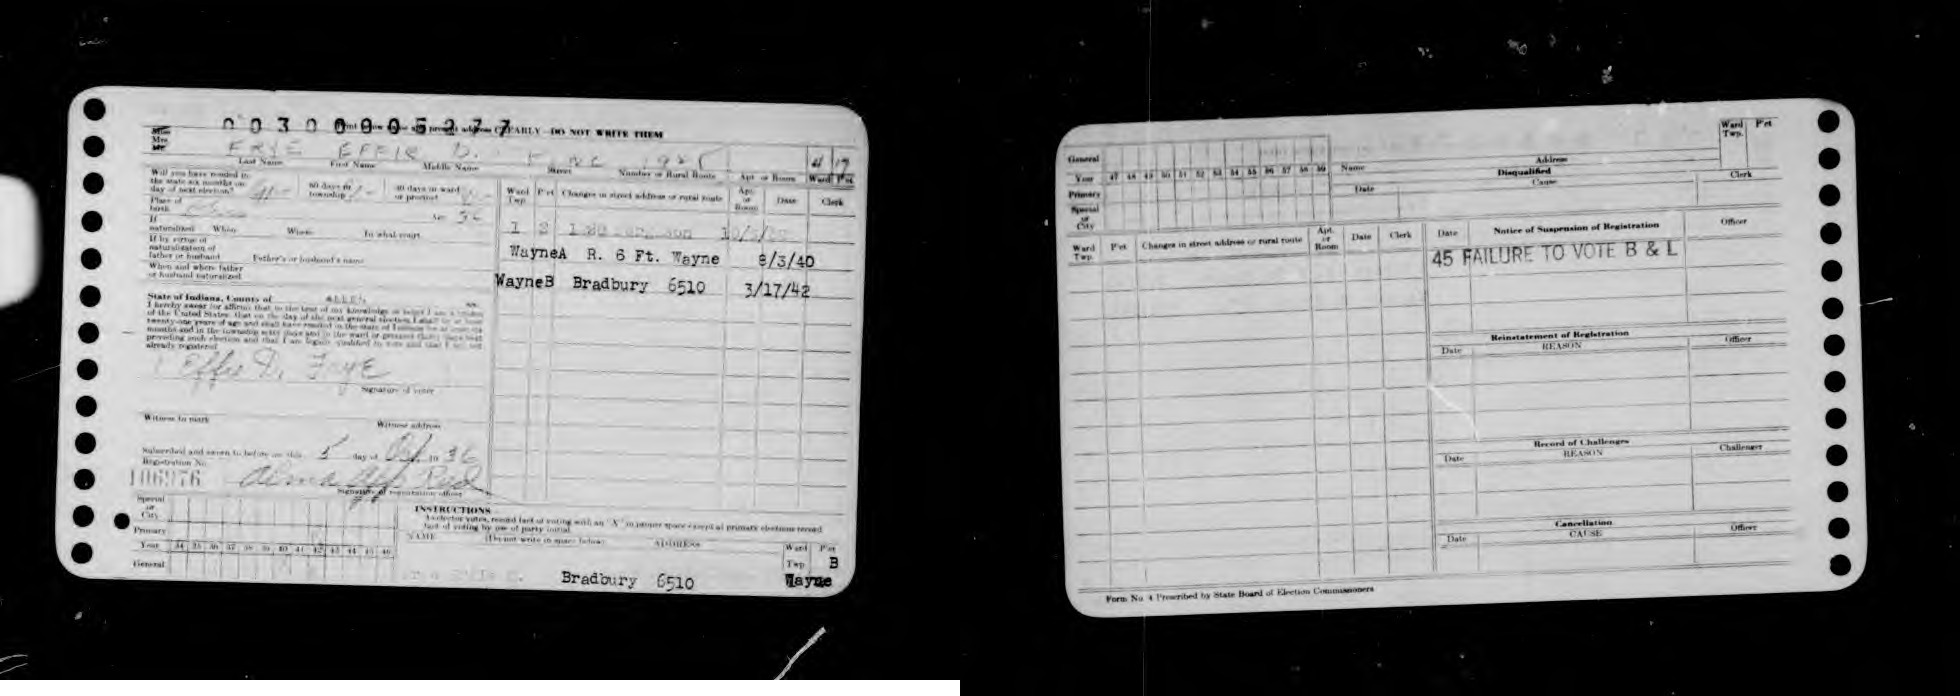 00300905277
CLEARLY—DO NOT WRITE THEM
Miss
Mrs
Mr
FRYE EFFIE D.
Last Name First Name Middle Name Street Number or Rural Route Apt. or Room Ward P'ct
Will you have resided in
the state six months on
day of next election? 60 days in
township 30 days in ward
or precinct
Place of
birth
If
naturalized When Where In what court
If by virtue of
naturalization of
father or husband Father's or husband's name
When and where father
or husband naturalized
State of Indiana, County of ALLEN
I hereby swear (or affirm) that to the best of my knowledge or belief I am a citizen
of the United States; that on the day of the next general election I shall be at least
twenty-one years of age and shall have resided in the state of Indiana for at least six
months and in the township sixty days and in the ward or precinct thirty days next
preceding such election and that I am legally qualified to vote and that I am not
already registered
Effie D. Frye
Signature of voter
Witness to mark Witness address
Subscribed and sworn to before me this 5 day of 19 36
Registration No.
106976
Signature of registration officer
Ward
Twp. P'ct Changes in street address or rural route Apt.
or
Room Date Clerk
Wayne A R. 6 Ft. Wayne 8/3/40
Wayne B Bradbury 6510 3/17/42
Special
or
City
Primary
Year 34 35 36 37 38 39 40 41 42 43 44 45 46
General
INSTRUCTIONS
If elector votes, record fact of voting with an "X" in proper space except at primary elections record
fact of voting by use of party initial.
NAME (Do not write in space below) ADDRESS
Ward P'ct
Twp B
Bradbury 6510 Wayne
General
Year 47 48 49 50 51 52 53 54 55 56 57 58 59
Primary
Special
or
City
Name Address
Ward
Twp. P'ct
Disqualified
Date Cause Clerk
Ward
Twp. P'ct Changes in street address or rural route Apt.
or
Room Date Clerk
Date Notice of Suspension of Registration Officer
45 FAILURE TO VOTE B & L
Reinstatement of Registration
Date REASON Officer
Record of Challenges
Date REASON Challenger
Cancellation
Date CAUSE Officer
Form No. 4 Prescribed by State Board of Election Commissioners